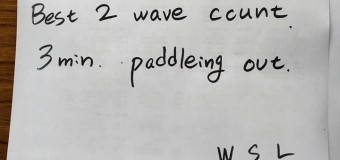 Best 2 wave count.
3 min. paddleing out.
W S L